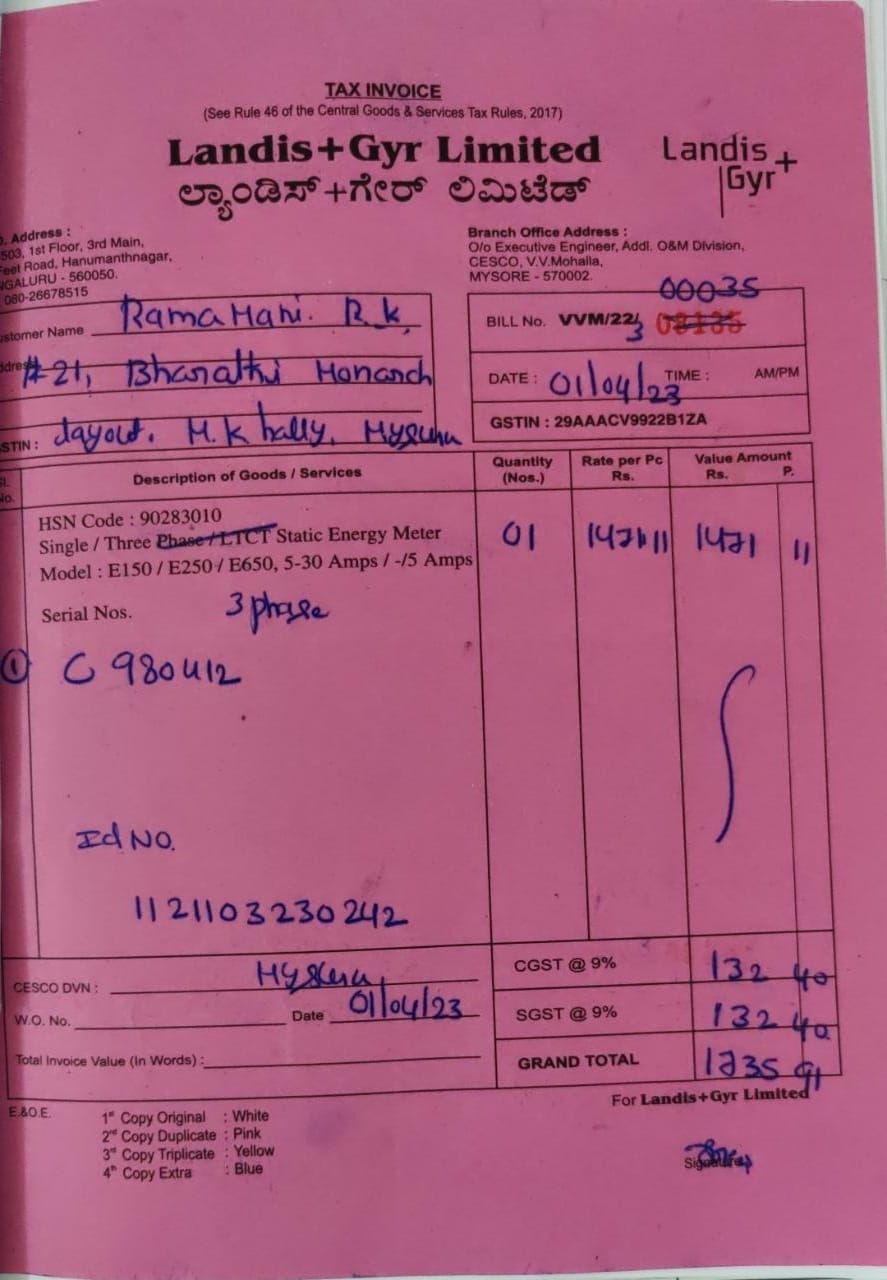 TAX INVOICE
(See Rule 46 of the Central Goods & Services Tax Rules, 2017)
Landis+Gyr Limited
ಲ್ಯಾಂಡಿಸ್+ಗೇರ್ ಲಿಮಿಟೆಡ್
Landis
Gyr+
Address :
503, 1st Floor, 3rd Main,
Feet Road, Hanumanthnagar,
GALURU - 560050.
080-26678515
Branch Office Address :
O/o Executive Engineer, Addl. O&M Division,
CESCO, V.V.Mohalla,
MYSORE - 570002.
stomer Name RamaMani. R.K,
#21, Bharathi
layout. M.K hally,
STIN :
00035
BILL No. VVM/22/3 08135
DATE : 01/04/23 TIME : AM/PM
GSTIN : 29AAACV9922B1ZA
No. Description of Goods / Services Quantity (Nos.) Rate per Pc Rs. Value Amount Rs. P.
HSN Code : 90283010
Single / Three Phase / LTCT Static Energy Meter 01 1471.11 1471 11
Model : E150 / E250 / E650, 5-30 Amps / -/5 Amps
Serial Nos. 3 phase
① C 980412
Id NO.
1121103230242
CESCO DVN : Mysuru
W.O. No. Date 01/04/23
Total Invoice Value (In Words) :
CGST @ 9% 132 40
SGST @ 9% 132 40
GRAND TOTAL 1735 91
For Landis+Gyr Limited
E.&O.E.
1st Copy Original : White
2nd Copy Duplicate : Pink
3rd Copy Triplicate : Yellow
4th Copy Extra : Blue
Signature